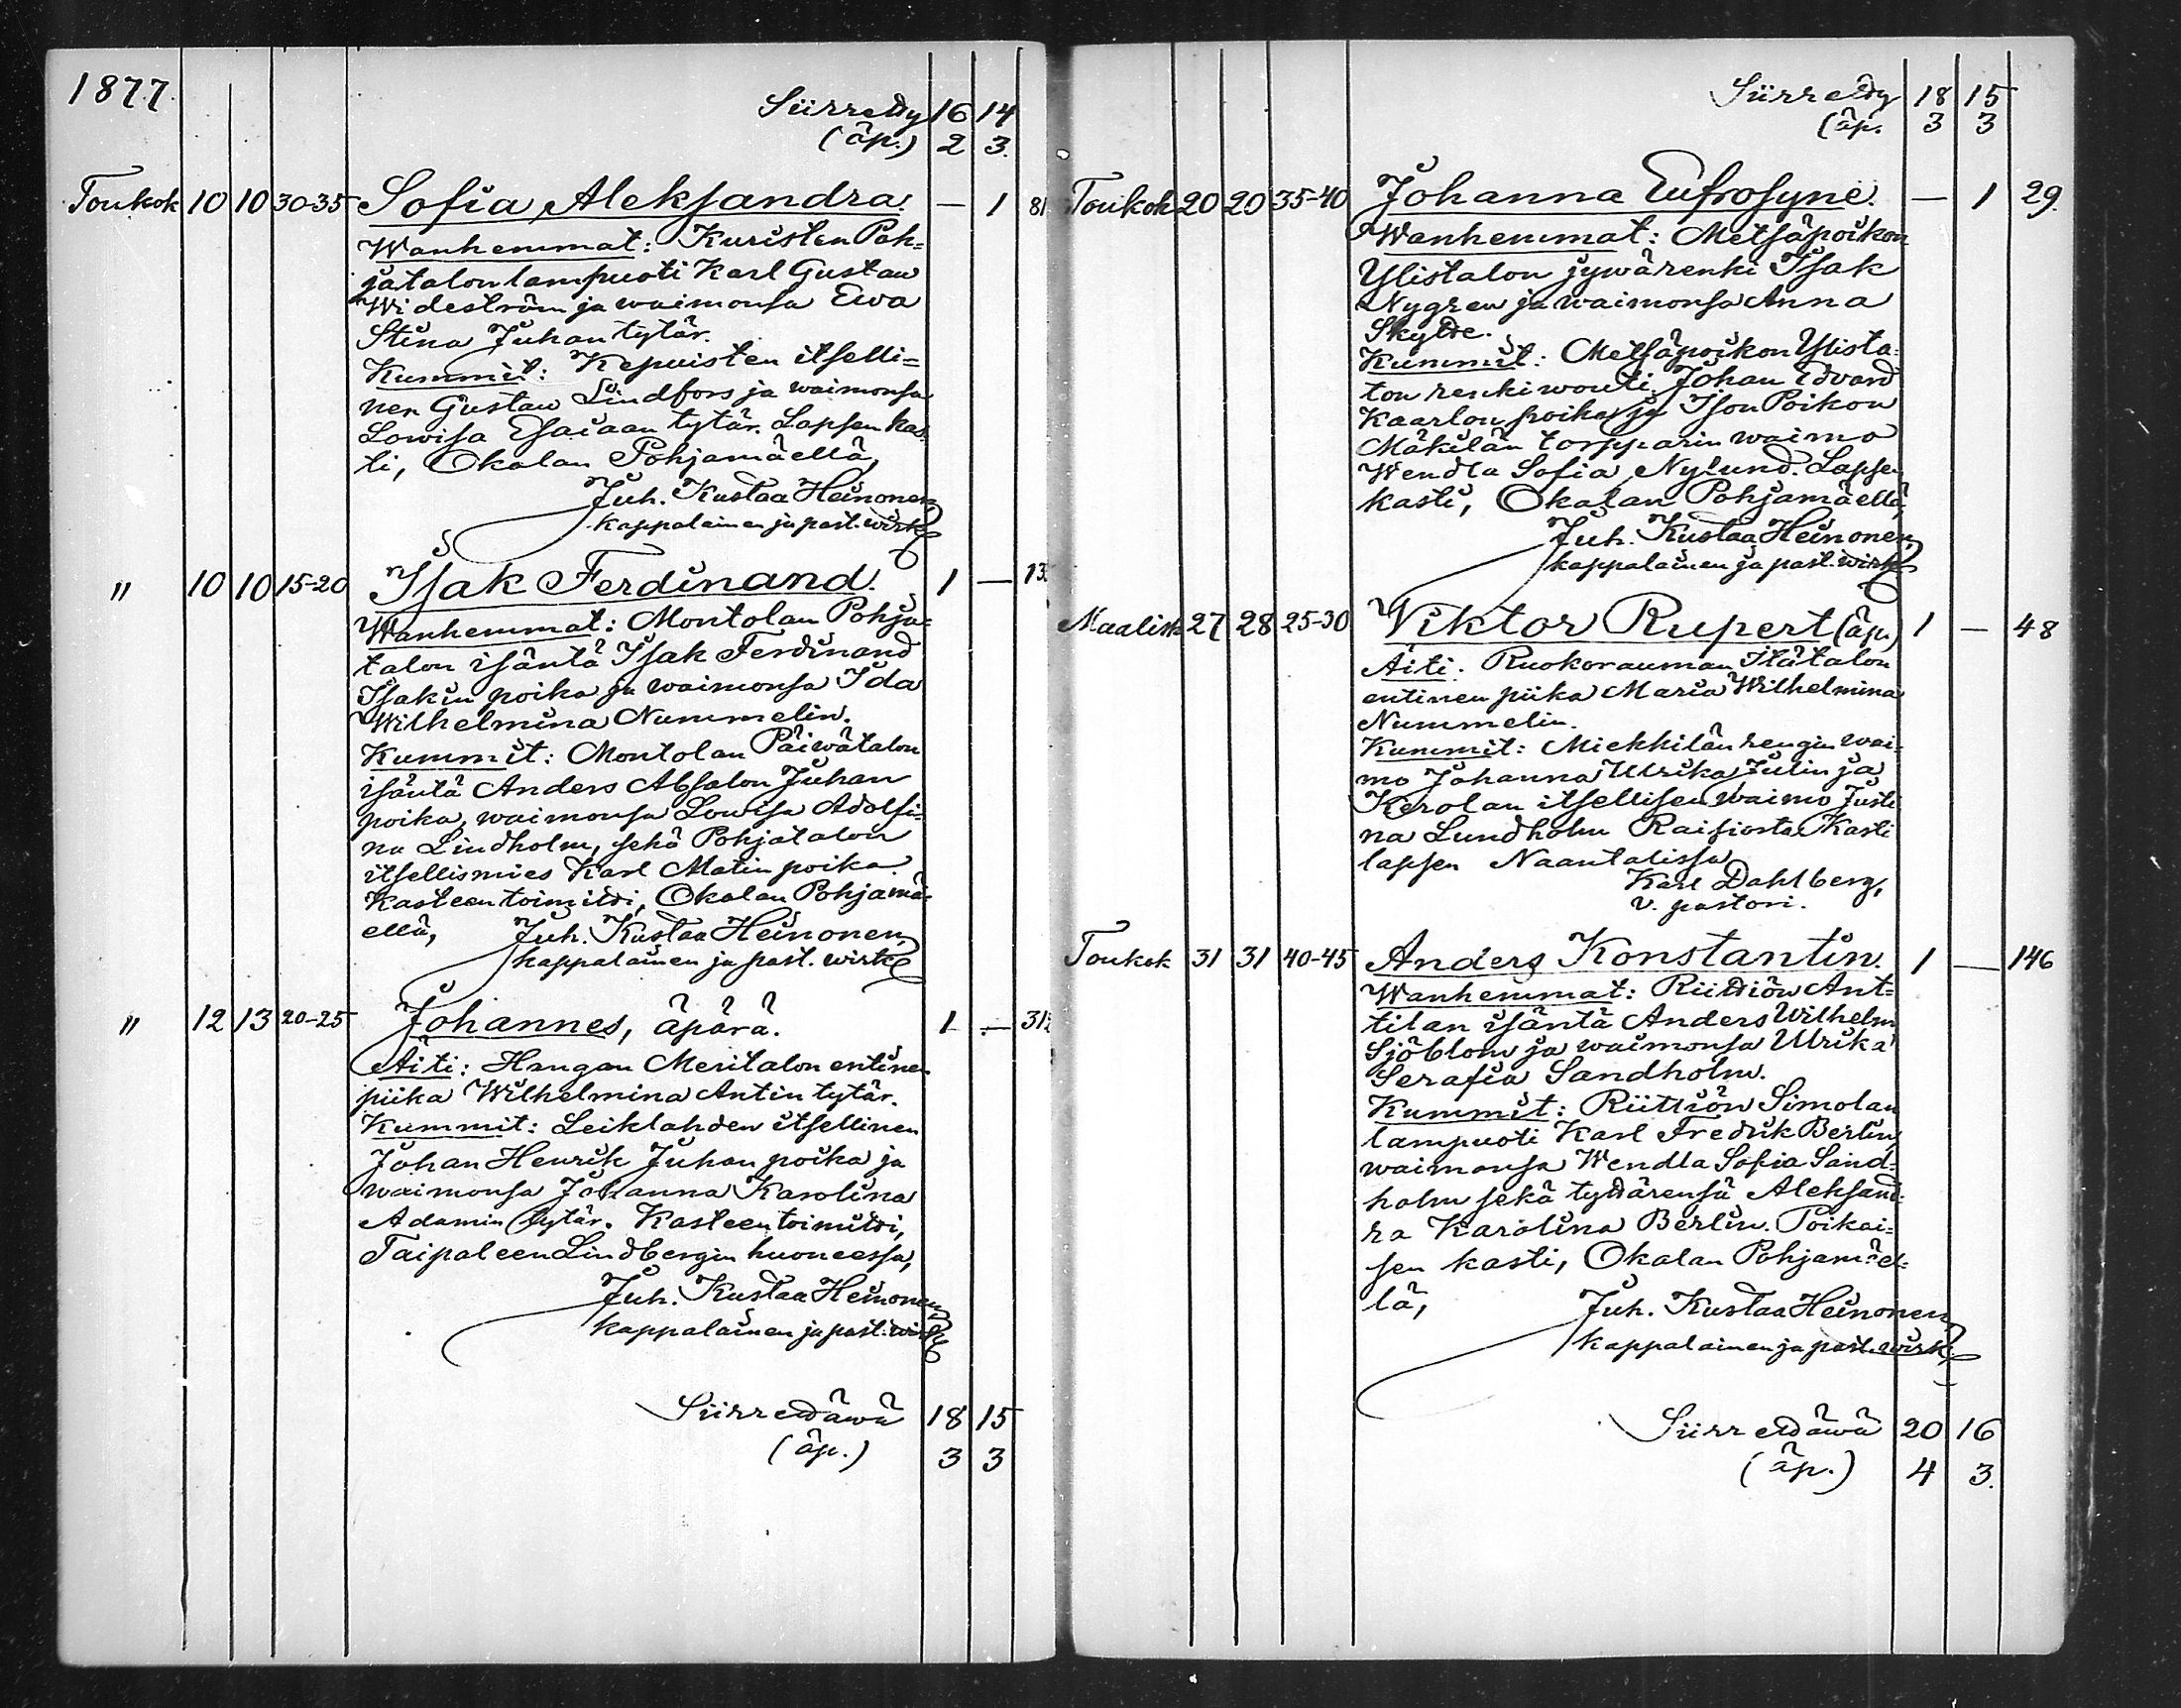 1877.
Siirretty 16 14
(äp.) 2 3.
Toukok 10 10 30-35 Sofia Aleksandra. — 1 81
Wanhemmat: Kuristen Poh=
jatalon lampuoti Karl Gustaw
Wideström ja waimonsa Ewa
Stina Juhan tytär.
Kummit: Kepuisten itselli=
nen Gustaw Lindfors ja waimonsa
Lowisa Esaiaan tytär. Lapsen kas=
ti, Okalan Pohjamäellä,
Juh. Kustaa Heinonen,
kappalainen ja past. wirk.
" 10 10 15-20 Isak Ferdinand. 1 —
Wanhemmat: Montolan Pohja=
talon isäntä Isak Ferdinand
Isakin poika ja waimonsa Ida
Wilhelmina Nummelin.
Kummit: Montolan Päiwätalon
isäntä Anders Absalon Juhan
poika, waimonsa Lowisa Adolfi=
na Lindholm, sekä Pohjatalon
itsellismies Karl Matin poika.
Kasteen toimitti, Okalan Pohjamä=
ellä, Juh. Kustaa Heinonen,
kappalainen ja past. wirk.
" 12 13 20-25 Johannes, äpärä. 1 —
Äiti: Hangan Meritalon entinen
piika Wilhelmina Antin tytär.
Kummit: Leiklahden itsellinen
Johan Henrik Juhan poika ja
waimonsa Johanna Karolina
Adamin tytär. Kasteen toimitti,
Taipaleen Lindbergin huoneessa,
Juh. Kustaa Heinonen,
kappalainen ja past. wirk.
Siirrettäwä 18 15
(äp.) 3 3
Siirretty 18 15
(äp. 3 3
Toukok 20 20 35-40 Johanna Eufrosyne. — 1 29.
Wanhemmat: Metsäpoikon
Ylistalon sywärenki Isak
Nygren ja waimonsa Anna
Skytte.
Kummit: Metsäpoikon Ylista=
lon renkiwouti Johan Edvard
Kaarlon poika ja Ison Poikon
Mäkilän torpparin waimo
Wendla Sofia Nylund. Lapsen
kasti, Okalan Pohjamäellä,
Juh. Kustaa Heinonen,
kappalainen ja past. wirk.
Maalisk 27 28 25-30 Viktor Rupert (äp.) 1 — 48
Äiti: Ruokorauman Itätalon
entinen piika Maria Wilhelmina
Nummelin.
Kummit: Miekkilän rengin wai=
mo Johanna Ulrika Julin ja
Kerolan itsellisen waimo Justi
na Lundholm Raisiosta. Kasti
lapsen Naantalissa
Karl Dahlberg,
v. pastori.
Toukok 31 31 40-45 Anders Konstantin. 1 — 146
Wanhemmat: Riittiön Ant=
tilan isäntä Anders Wilhelm
Sjöblom ja waimonsa Ulrika
Serafia Sandholm.
Kummit: Riittiön Simolan
lampuoti Karl Fredrik Berlin,
waimonsa Wendla Sofia Sand=
holm sekä tyttärensä Aleksand=
ra Karolina Berlin. Poikai=
sen kasti, Okalan Pohjamäel=
lä, Juh. Kustaa Heinonen,
kappalainen ja past. wirk.
Siirrettäwä 20 16
(äp.) 4 3.